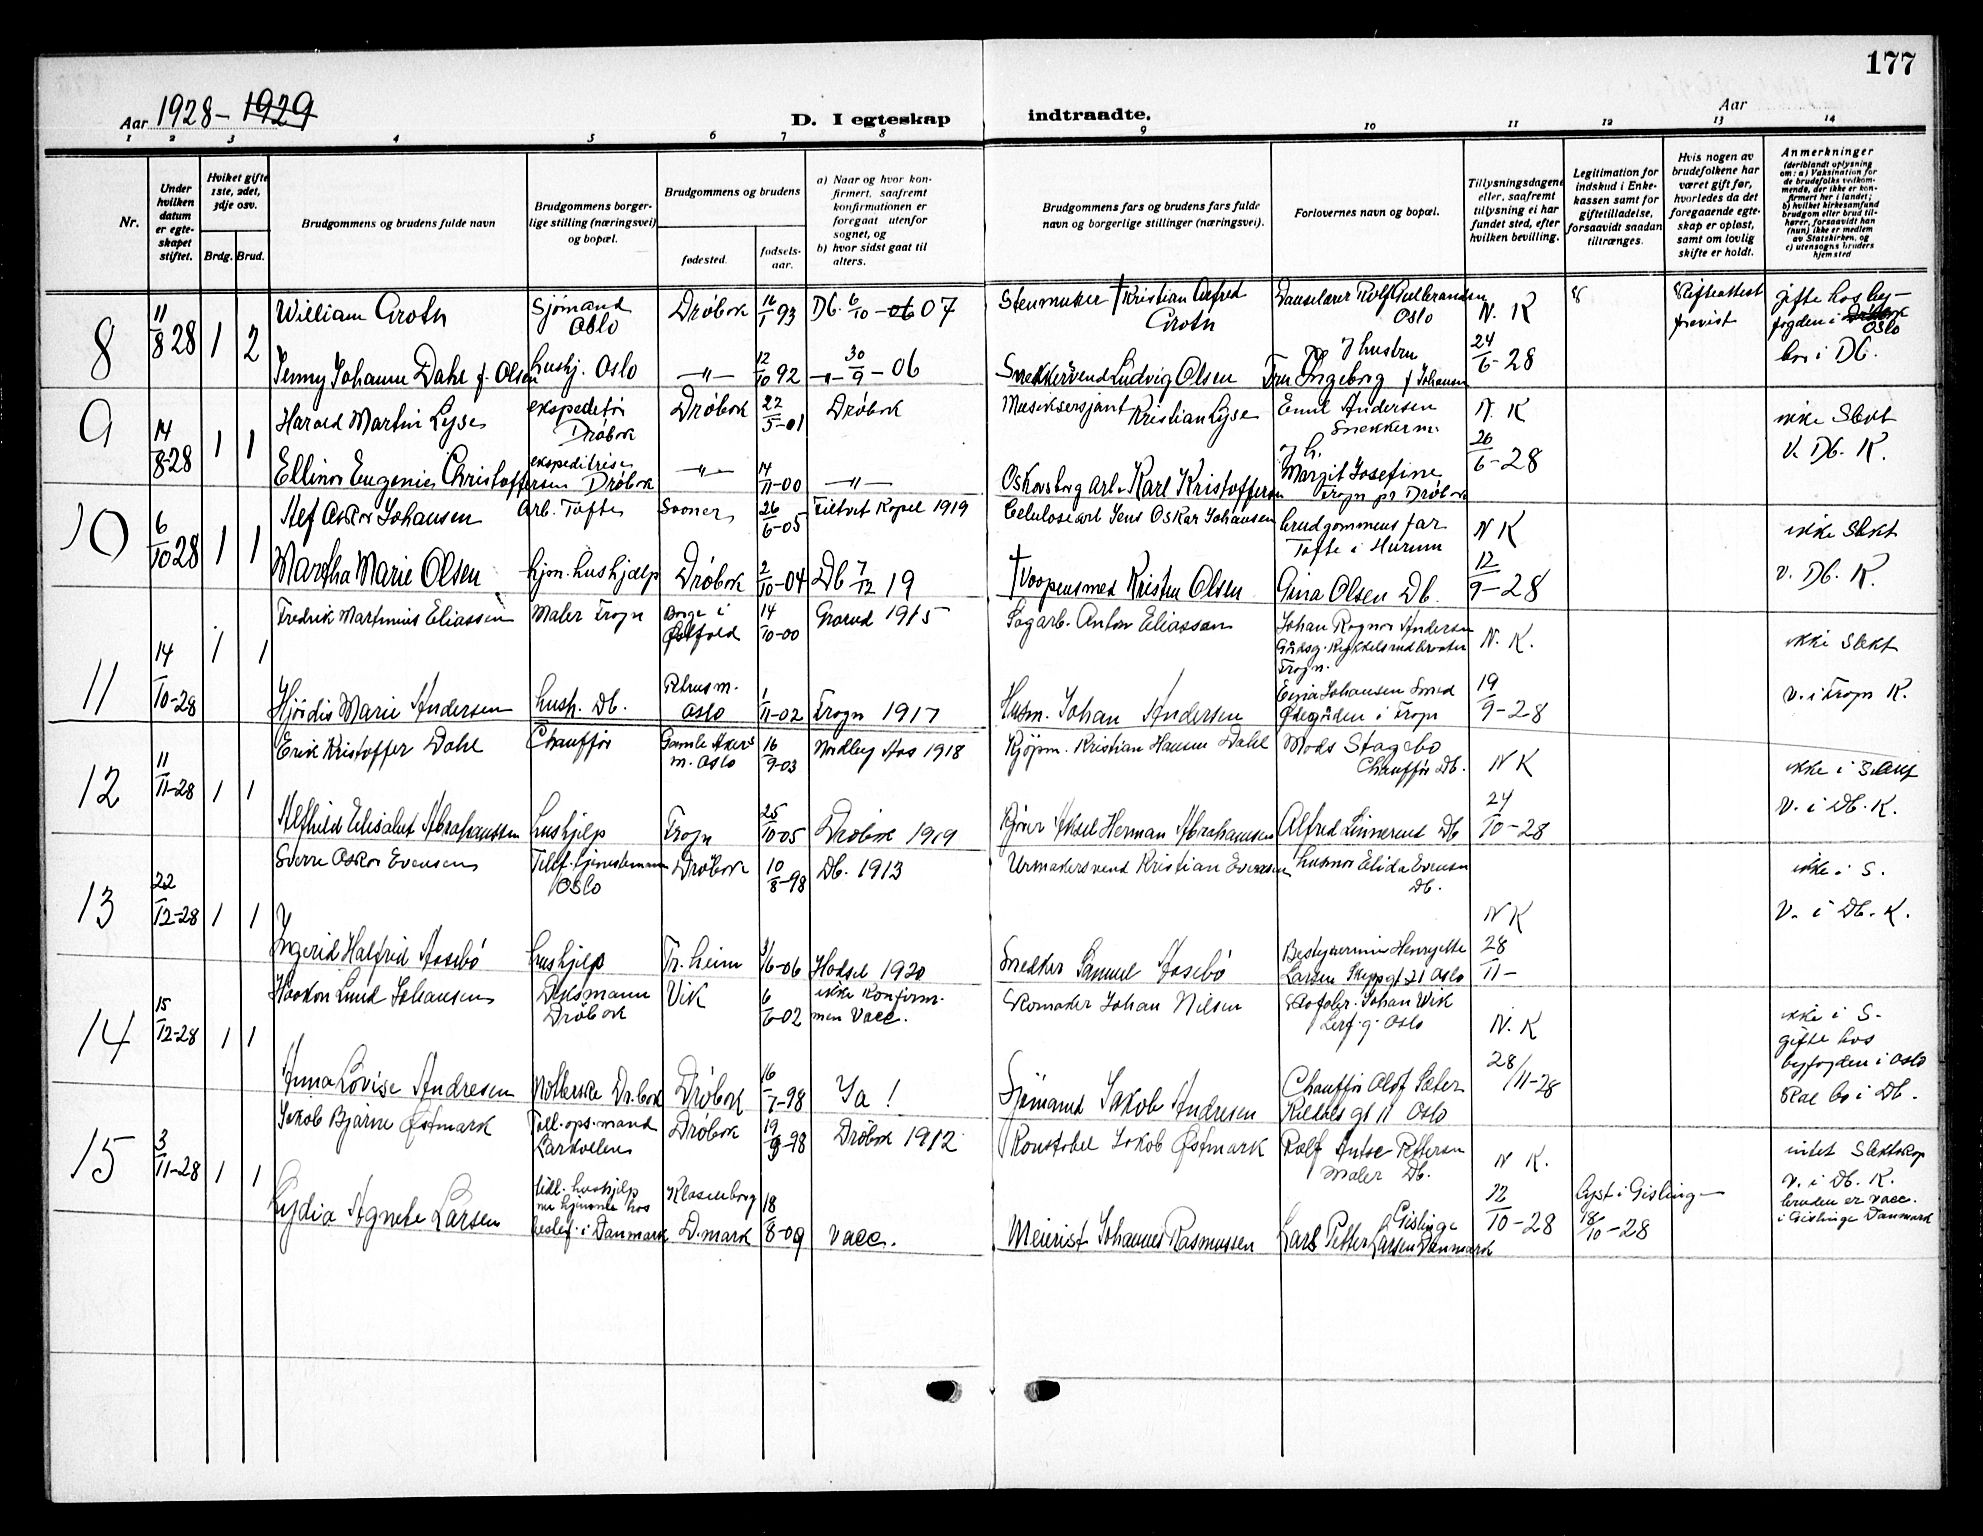 177
Aar 1928 - 1929
D. I egteskap
indtraadte.
Aar
1 2 3 4 5 6 7 8 9 10 11 12 13 14
Nr.
Under hvilken datum er egteskapet stiftet.
Hviket gifte 1ste, 2det, 3dje osv.
Brdg. Brud.
Brudgommens og brudens fulde navn
Brudgommens borgerlige stilling (næringsvei) og bopæl.
Brudgommens og brudens
fødested.
fødselsaar.
a) Naar og hvor konfirmert, saafremt konfirmationen er foregaat utenfor sognet, og
b) hvor sidst gaat til alters.
Brudgommens fars og brudens fars fulde navn og borgerlige stillinger (næringsvei).
Forlovernes navn og bopæl.
Tillysningsdagene eller, saafremt tillysning ei har fundet sted, efter hvilken bevilling.
Legitimation for indskud i Enkekassen samt for giftetilladelse, forsaavidt saadan tiltrænges.
Hvis nogen av brudefolkene har været gift før, hvorledes da det foregaaende egteskap er opløst, samt om lovlig skifte er holdt.
Anmerkninger
(deriblandt oplysning om: a) Vaksination for de brudefolks vedkommende, der ikke er konfirmert her i landet; b) hvilket kirkesamfund brudgom eller brud tilhører, forsaavidt han (hun) ikke er medlem av Statskirken, og c) utensogns bruders hjemsted
8
11/8 28 1 2
William Groth
Sjømand Oslo
Drøbak 16/1 93
Db. 6/10 - 06 07
Stenmuker † Kristian Alfred Groth
Danselærer Rolf Gulbrandsen Oslo
N. K
Skifteattest forevist
gifte hos byfogden i Drøbak Oslo
Jenny Johanne Dahl f. Olsen
hushj. Oslo
-"- 12/10 92
-"- 30/9 - 06
Snekkersvend Ludvig Olsen
og hustru
Fru Ingeborg f Johansen
24/6-28
bor i Db.
9
14/8-28 1 1
Harald Martin Lyse
ekspeditør Drøbak
Drøbak 22/5-01
Drøbak
Musiksersjant Kristian Lyse
Emil Andersen Snekkerm.
N. K
ikke Slekt
Ellinor Eugenie Christoffersen
ekspeditrise Drøbak
-"- 14/11-00
-"-
Oskarsborg arb. Karl Kristoffersen
og h. Margit Josefine Frogn pr Drøbak
26/6-28
v. Db. K.
10
6/10 28 1 1
Alf Oskar Johansen
Arb. Tofte
Sooner 26/6-05
Filtvet Kapel 1919
Celulosearb Jens Oskar Johansen
brudgommens far Tofte i Hurum
N K
ikke Slekt
Martha Marie Olsen
hjm. hushjælp
Drøbak 2/10-04
Db 7/12 19
† Vaapensmed Kristen Olsen
Gina Olsen Db.
12/9-28
v. Db. K.
11
14/10-28 1 1
Fredrik Martinius Eliassen
Maler Frogn
Borge i Østfold 14/10-00
Grorud 1915
Sagarb. Anton Eliassen
Johan Ragnar Andersen
Frogn.
N. K.
ikke Slekt
Hjørdis Marie Andersen
hush. Db.
Petrus m. Oslo 1/11-02
Frogn 1917
Husm. Johan Andersen
Einar Johansen Smed
Ødegården i Frogn
19/9-28
v. i Frogn K.
12
11/11-28 1 1
Erik Kristoffer Dahl
Chauffør
Gamle Akers m. Oslo 16/9-03
Nordby Aas 1918
Kjøpm. Kristian Hansen Dahl
Mads Stagebo
Chauffør Db.
N K
ikke i Slekt
Alfhild Elisabet Abrahamsen
hushjelp
Frogn 25/10-05
Drøbak 1919
Kjører Aksel Herman Abrahamsen
Alfred Linnerud Db
24/10-28
V. i Db. K.
13
22/12-28 1 1
Sverre Oskar Evensen
Telef. tjenestemann Oslo
Drøbak 10/8-98
Db. 1913
Urmakersvend Kristian Evensen
husmor Elida Evensen Db.
N K
ikke i S.
V. i Db. K.
Ingerid Halfrid Aasebö
hushjelp
Tr. heim 3/6-06
Hadsel 1920
Snekker Samuel Aasebö
Bestyrerinne Henryette Larsen Skippgt 21 Oslo
28/11-
14
15/12-28 1 1
Haakon Lund Johansen
Deksmann Drøbak
Vik 6/6-02
ikke konfirm. men Vacc.
Skomaker Johan Nilsen
Johan Vik
Oslo
N. K
ikke i S.
gifte hos byfogden i Oslo
Anna Lovise Andresen
Drøbak 16/7-98
Ja !
Sjömand Jakob Andresen
Chauffør Olof Sæter
Oslo
28/11-28
Skal bo i Db.
15
3/11-28 1 1
Jakob Bjarne Østmark
Toll.ops.mand Larkollen
Drøbak 19/9-98
Drøbak 1912
Konstabel Jakob Østmark
Ralf Antse Pettersen
Maler Db.
N K.
intet Slektskap
V. i Db. K.
Lydia Agnete Larsen
tidl. hushjelp
nu hjemme hos beslef. i Danmark
Klasenborg D.mark 18/8-09
vacc.
Meierist Johannes Rasmussen
Lars Petter Larsen Gislinge Danmark
12/10-28
lyst i Gislinge 18/10-28
bruden er vacc. i Gislinge Danmark